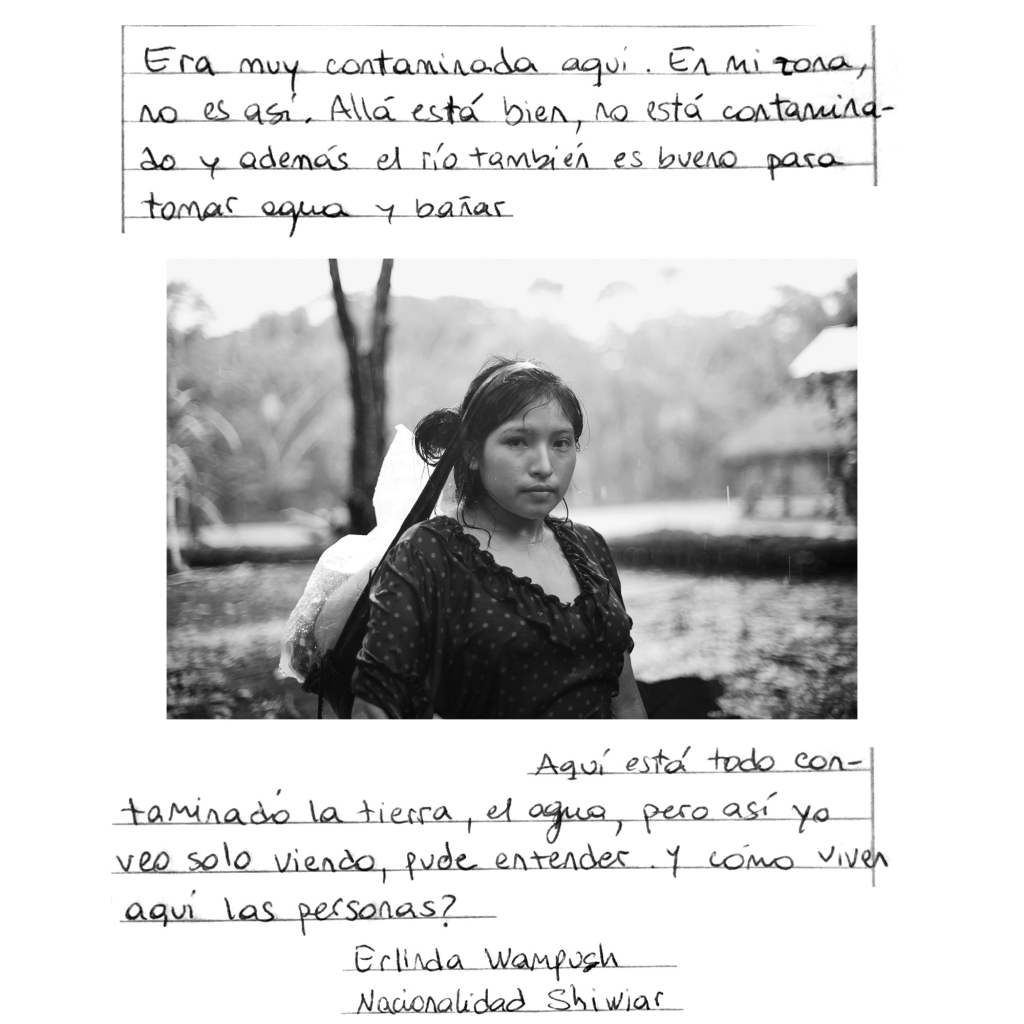 Era muy contaminada aquí. En mi zona,
no es así. Allá está bien, no está contamina-
do y además el río también es bueno para
tomar agua y bañar
Aquí está todo con-
taminadó la tierra, el agua, pero así yo
veo solo viendo, pude entender. Y cómo viven
aquí las personas?
Erlinda Wampush
Nacionalidad Shiwiar